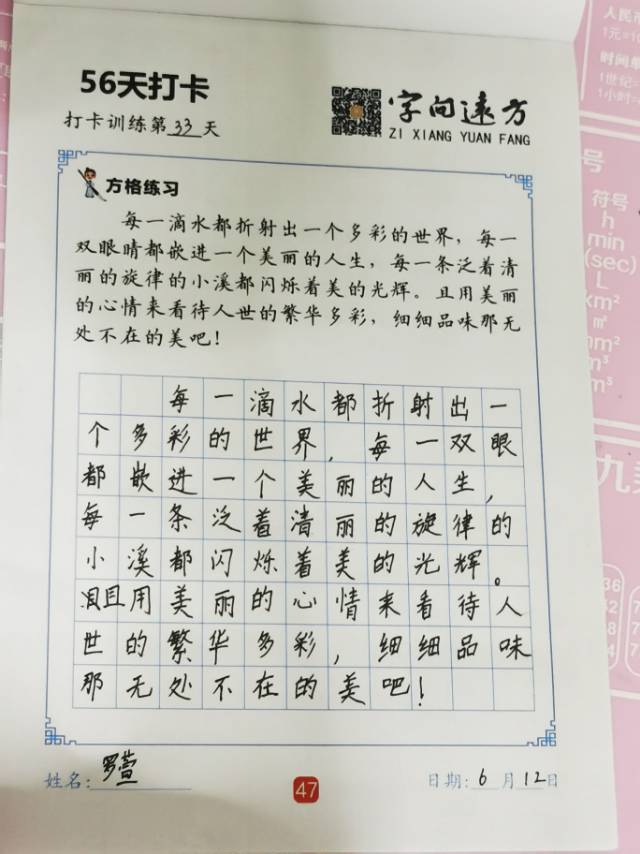 56天打卡
打卡训练第33天
字向远方
ZI XIANG YUAN FANG
方格练习
每一滴水都折射出一个多彩的世界，每一
双眼睛都嵌进一个美丽的人生，每一条泛着清
丽的旋律的小溪都闪烁着美的光辉。且用美丽
的心情来看待人世的繁华多彩，细细品味那无
处不在的美吧！
每一滴水都折射出一
个多彩的世界，每一双眼
都嵌进一个美丽的人生，
每一条泛着清丽的旋律的
小溪都闪烁着美的光辉。
且用美丽的心情来看待人
世的繁华多彩，细细品味
那无处不在的美吧！
姓名：罗萱
47
日期：6月12日
人民币
1元=10
时间单
1世纪=
1小时=
号
符号
h
min
(sec)
L
km²
㎡
九